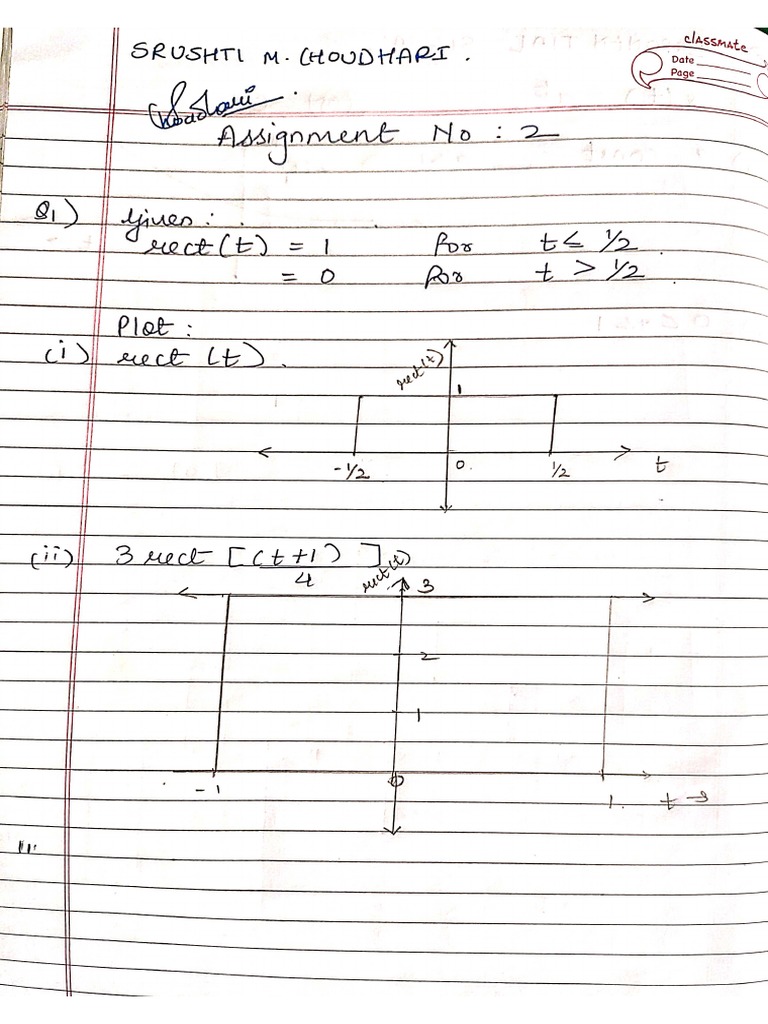 classmate
Date
Page
SRUSHTI M. CHOUDHARI.
Assignment No : 2
Q1) Given :
rect(t) = 1 for t ≤ 1/2
= 0 for t > 1/2
Plot :
(i) rect (t).
rect(t)
1
-1/2 0. 1/2 t
(ii) 3 rect [(t+1)/4]
rect(t)
3
2
1
-1 0 1. t →